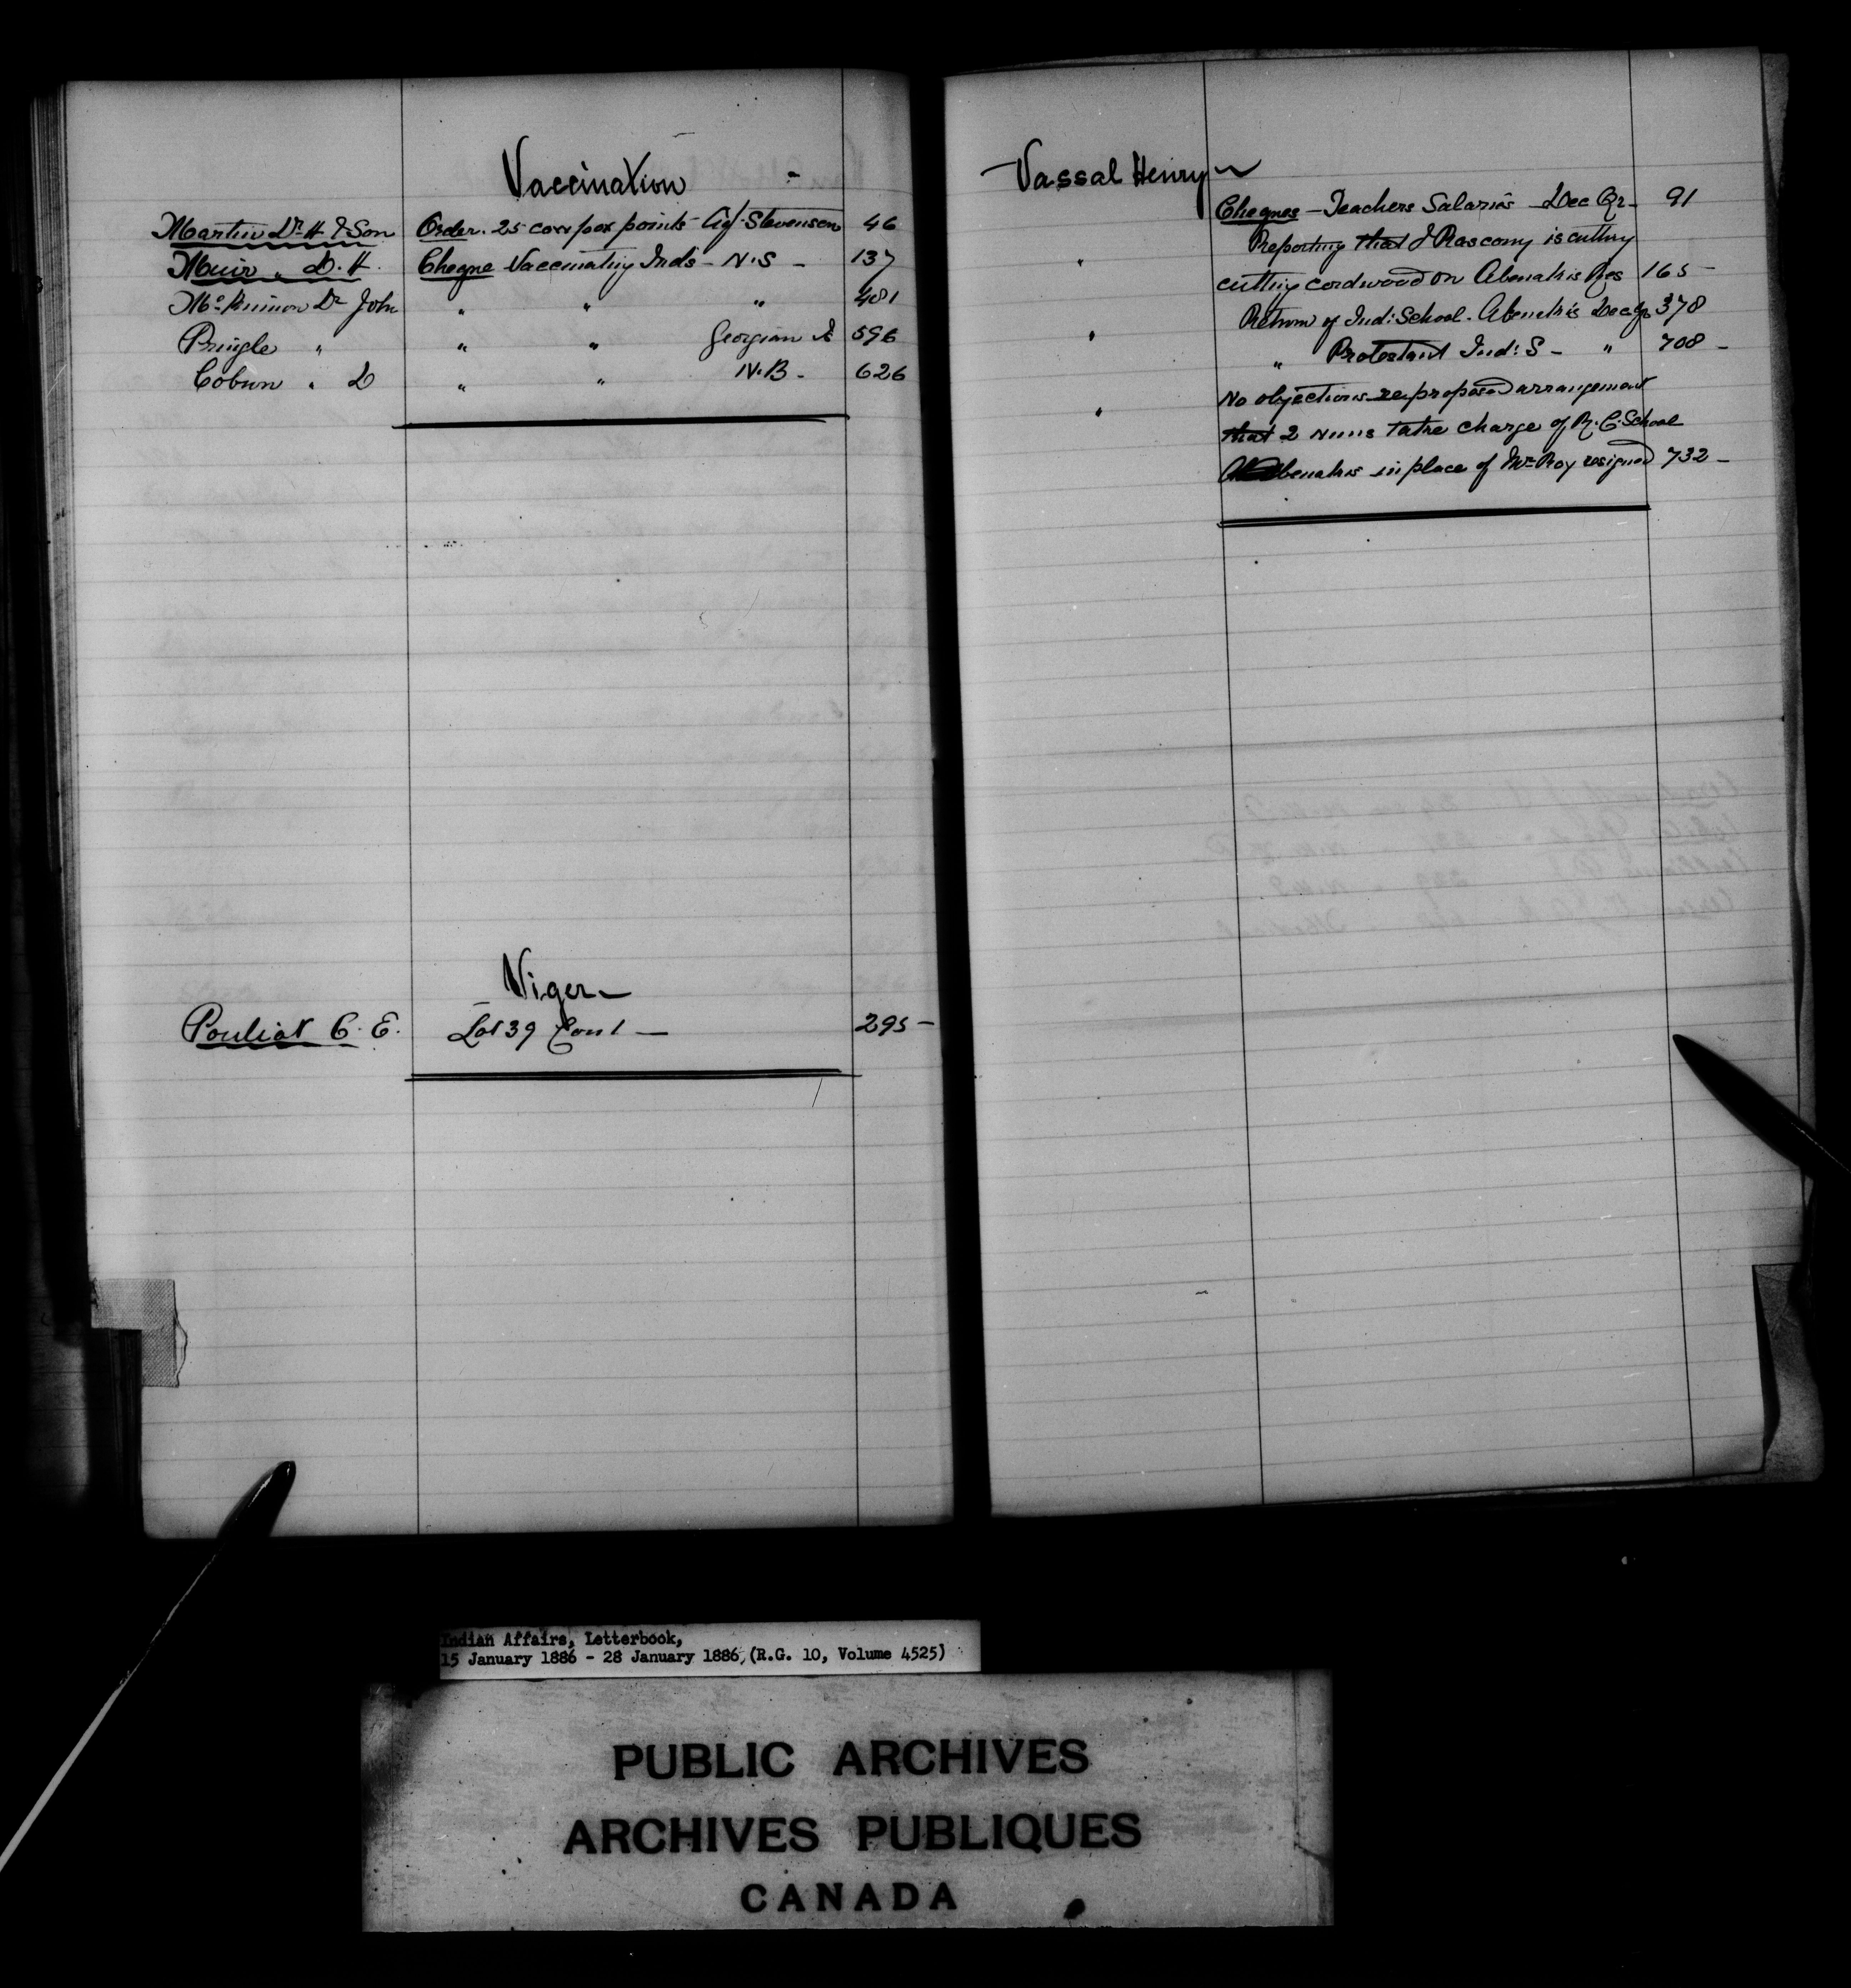 Vaccination
Martin Dr. H & Son Order. 25 cow pox points Agt. Stevenson 46
Muir " D. H. Cheque Vaccinating Inds - N.S - 137
McKinnon Dr John " " " 481
Pringle " " " Georgian 596
Coburn " D " " N.B - 626
Viger -
Pouliot C. E. Lot 39 Con 1 - 295 -
Vassal Henry
Cheques - Teachers Salaries - Dec Qr - 91
" Reporting that J Rascony is cutting
cutting cordwood on Abenakis Res 165 -
" Return of Ind: School. Abenakis Dec Qr 378
" Protestant Ind: S - " 708 -
" No objections re proposed arrangement
that 2 nuns take charge of R. C. School
Abenakis in place of Mr Roy resigned 732 -
Indian Affairs, Letterbook,
15 January 1886 - 28 January 1886, (R.G. 10, Volume 4525)
PUBLIC ARCHIVES
ARCHIVES PUBLIQUES
CANADA